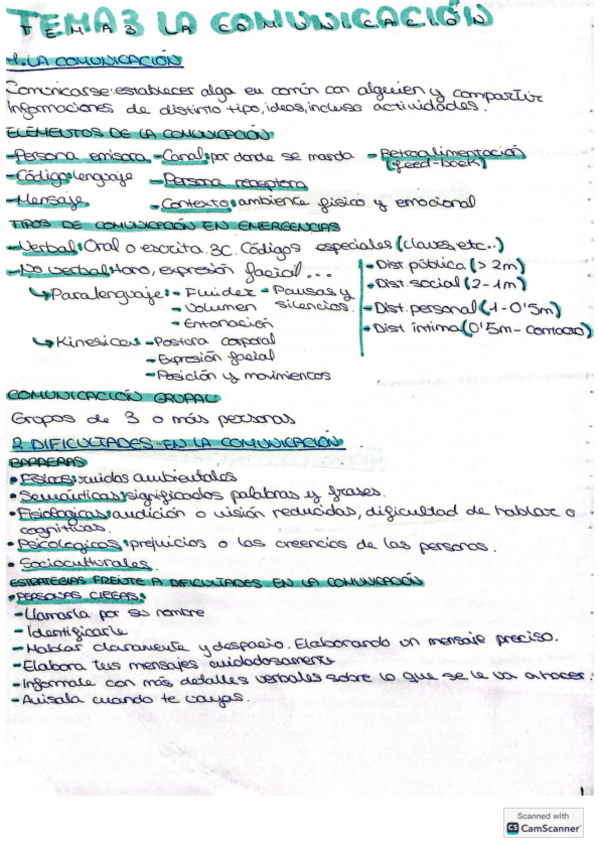 TEMA3 LA COMUNICACIÓN
1. LA COMUNICACIÓN
Comunicarse: establecer algo en común con alguien y compartir
informaciones de distinto tipo, ideas, incluso actividades.
ELEMENTOS DE LA COMUNICACIÓN
-Persona emisora -Canal: por donde se manda -Retroalimentación
(feed-back)
-Código: lenguaje -Persona receptora
-Mensaje -Contexto: ambiente físico y emocional
TIPOS DE COMUNICACIÓN EN EMERGENCIAS
-Verbal: Oral o escrita. 3C. Códigos especiales (claves, etc..)
-No verbal: tono, expresión facial...
↳Paralenguaje: - Fluidez - Pausas y silencios.
-Volumen
-Entonación
↳Kinesicas -Postura corporal
-Expresión facial
-Posición y movimientos
-Dist pública (>2m)
-Dist. social (2-1m)
-Dist. personal (1-0'5m)
-Dist íntima (0'5m- contacto)
COMUNICACIÓN GRUPAL
Grupos de 3 o más personas
2 DIFICULTADES EN LA COMUNICACIÓN
BARRERAS
• Físicas: ruidos ambientales
• Semánticas: significados palabras y frases.
• Fisiológicas: audición o visión reducidas, dificultad de hablar o
cognitivas.
• Psicológicas: prejuicios o las creencias de las personas.
• Socioculturales.
ESTRATEGIAS FRENTE A DIFICULTADES EN LA COMUNICACIÓN
• PERSONAS CIEGAS:
-Llamarla por su nombre
-Identificarte
-Hablar claramente y despacio. Elaborando un mensaje preciso.
-Elabora tus mensajes cuidadosamente
-Informale con más detalles verbales sobre lo que se le va a hacer.
-Avisala cuando te vayas.
1
Scanned with
CS CamScanner